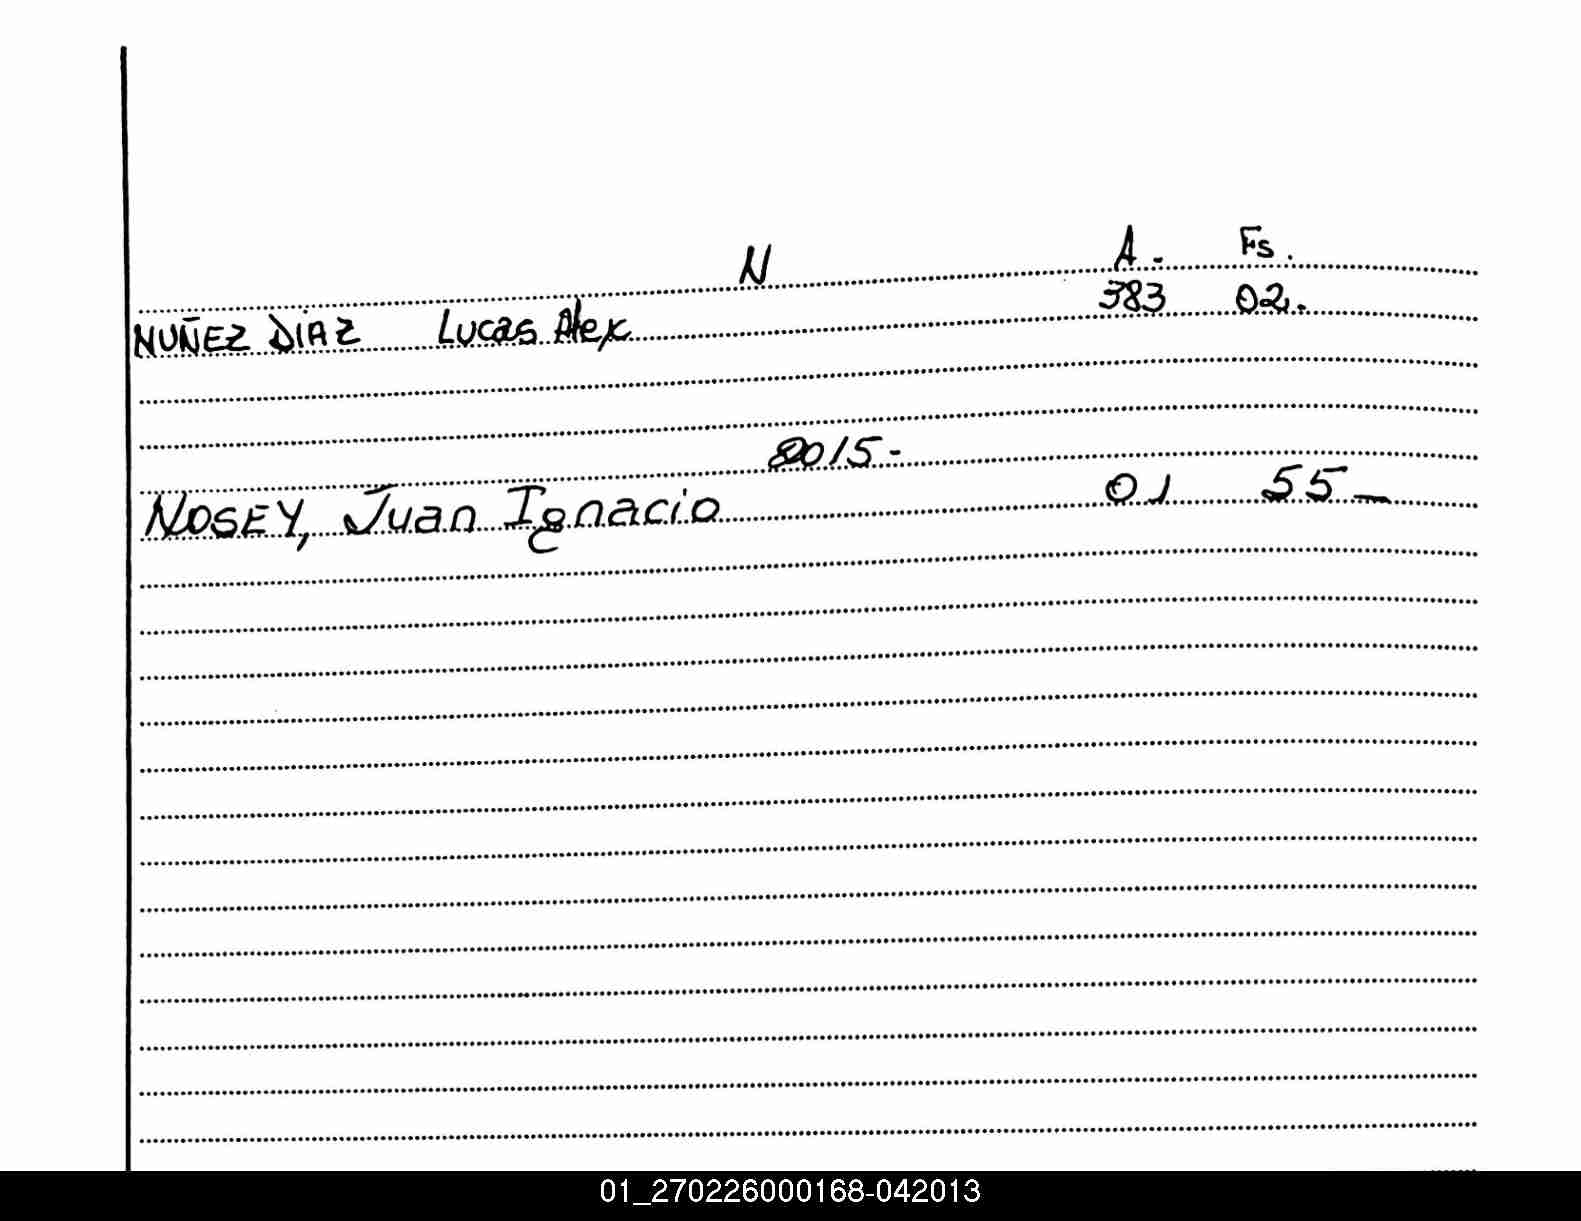 N A. Fs.
NUÑEZ DIAZ Lucas Alex 383 02.
2015-
NOSEY, Juan Ignacio 01 55-
01_270226000168-042013